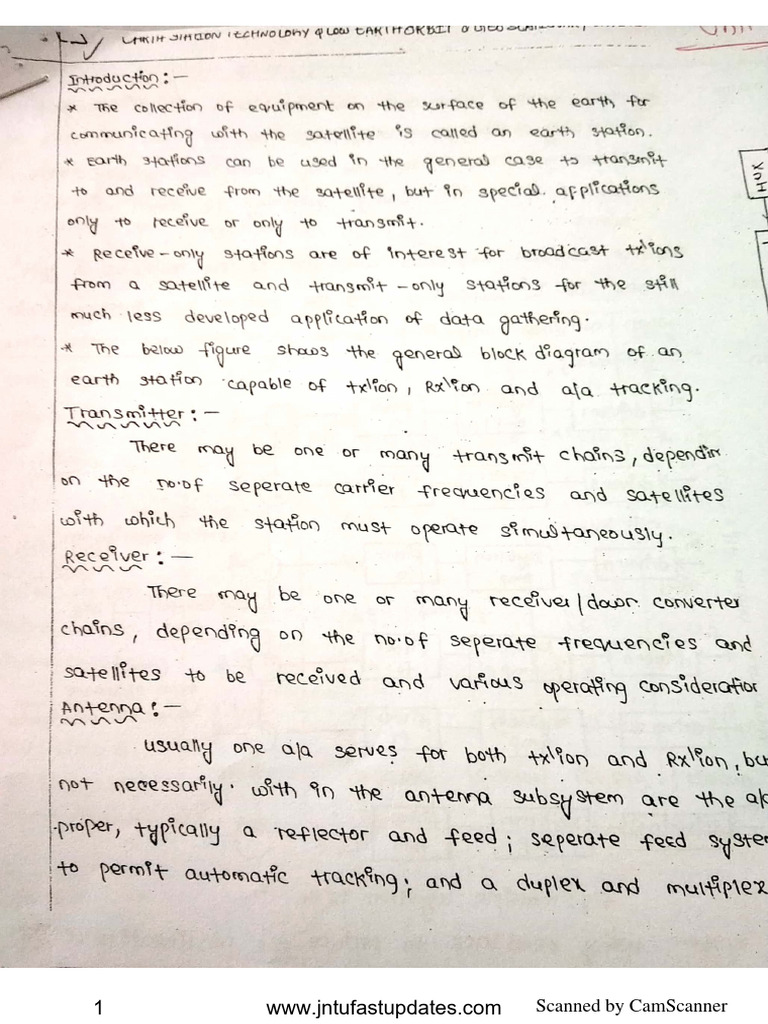 EARTH STATION TECHNOLOGY & LOW EARTH ORBIT &
Introduction:-
* The collection of equipment on the surface of the earth for
communicating with the satellite is called an earth station.
* Earth stations can be used in the general case to transmit
to and receive from the satellite, but in special applications
only to receive or only to transmit.
* Receive-only stations are of interest for broadcast tx'ions
from a satellite and transmit-only stations for the still
much less developed application of data gathering.
* The below figure shows the general block diagram of an
earth station capable of tx'ion, Rx'ion and a/a tracking.
Transmitter:-
There may be one or many transmit chains, dependin
on the no.of seperate carrier frequencies and satellites
with which the station must operate simultaneously.
Receiver:-
There may be one or many receiver/down converter
chains, depending on the no.of seperate frequencies and
satellites to be received and various operating consideration
Antenna:-
usually one a/a serves for both tx'ion and Rx'ion, bu
not necessarily. with in the antenna subsystem are the a/a
proper, typically a reflector and feed; seperate feed system
to permit automatic tracking; and a duplex and multiplex
MUX
1 www.jntufastupdates.com Scanned by CamScanner